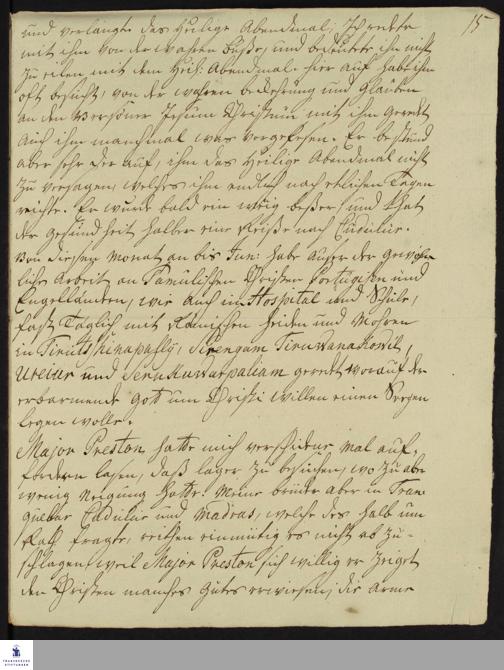 15
und verlangte das Heilige Abendmal; Ich redete
mit ihm von der wahren Buße, und bedeutete ihn nicht
zu eilen mit dem Heil: Abendmal. Hier auf habe ihn
oft besucht, von der wahren bekehrung und Glauben
an den Versöner Jesum Christum mit ihm geredet
auch ihm manchmal was vorgelesen. Er bestund
aber sehr drauf, ihm das Heilige Abendmal nicht
zu versagen, welches ihm endlich nach etlichen Tagen
reichte. Er wurde bald ein wenig beßer und that
der gesundheit halber eine Reise nach Cudulur.
Von diesen Monat an bis Jun: habe außer der gewöhn
lichen Arbeit an Tamulischen Christen Portugisen und
Engelländern, wie auch im Hospital und Schule,
fast Täglich mit Heiden und Mohren
in Tirutschinapally, Sirengam Tiruwanakowil,
Ureiur und geredet worauf der
erbarmende Gott um Christi willen einen Seegen
legen wolle.
Major Preston hatte mich verschidene mal auf-
fordern lasen, daß lager zu besuchen, wo zu aber
wenig neigung hatte. Meine brüder aber in Tran
quebar Cudulur und Madras, welche des halb um
Rath fragte, riethen einmütig es nicht ab zu-
schlagen, weil Major Preston sich willig er zeiget
den Christen manches gutes erweisen, die arme
FRANCKESCHE
STIFTUNGEN